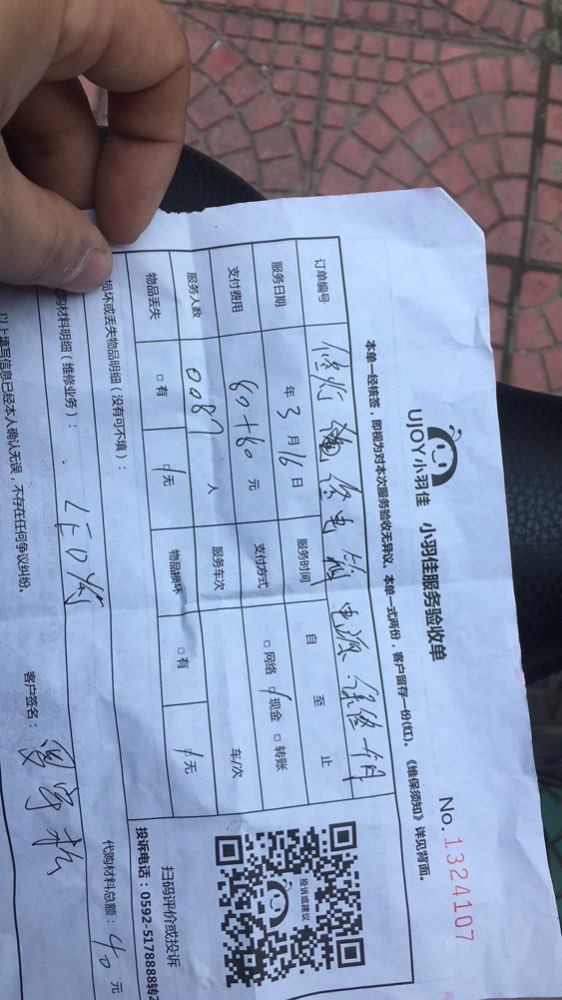 UJOY小羽佳 小羽佳服务验收单
No. 1324107
本单一经核签，即视为对本次服务验收无异议，本单一式两份，客户留存一份(红)。《维保须知》详见背面。
订单编号 修灯 电箱 电源 保修一个月
服务日期 年 3 月 16 日 服务时间 自 至 止
支付费用 80+80 元 支付方式 □网络 现金 □转账
服务人数 0087 人 服务车次 车/次
物品丢失 □有 无 物品损坏 □有 无
损坏或丢失物品明细（没有可不填）：
购材料明细（维修业务）： LED灯 代购材料总额： 40 元
以上填写信息已经本人确认无误，不存在任何争议纠纷。
客户签名：
投诉或建议
扫码评价或投诉
投诉电话：0592-5178888转2